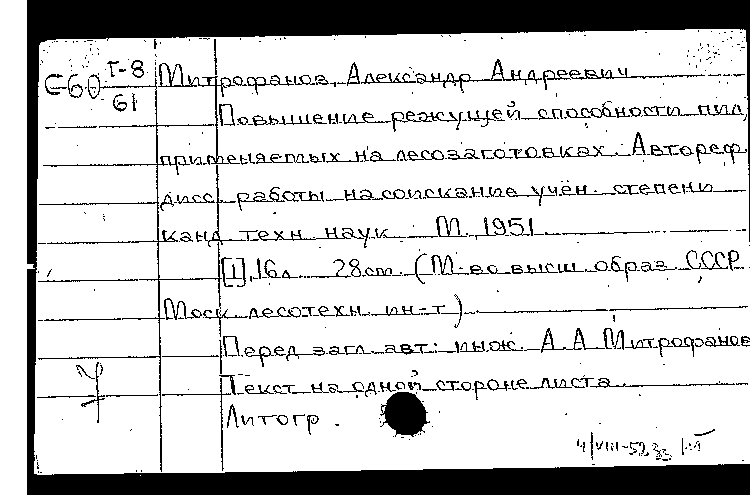 С60 Т-8/61
Митрофанов, Александр Андреевич
Повышение режущей способности пил,
применяемых на лесозаготовках. Автореф.
дисс. работы на соискание учён. степени
канд. техн. наук. М. 1951.
[1], 16 л. 28 см. (М-во высш. образ. СССР.
Моск. лесотехн. ин-т)
Перед загл. авт.: инж. А.А Митрофанов
Текст на одной стороне листа.
Литогр.
4/VIII-52